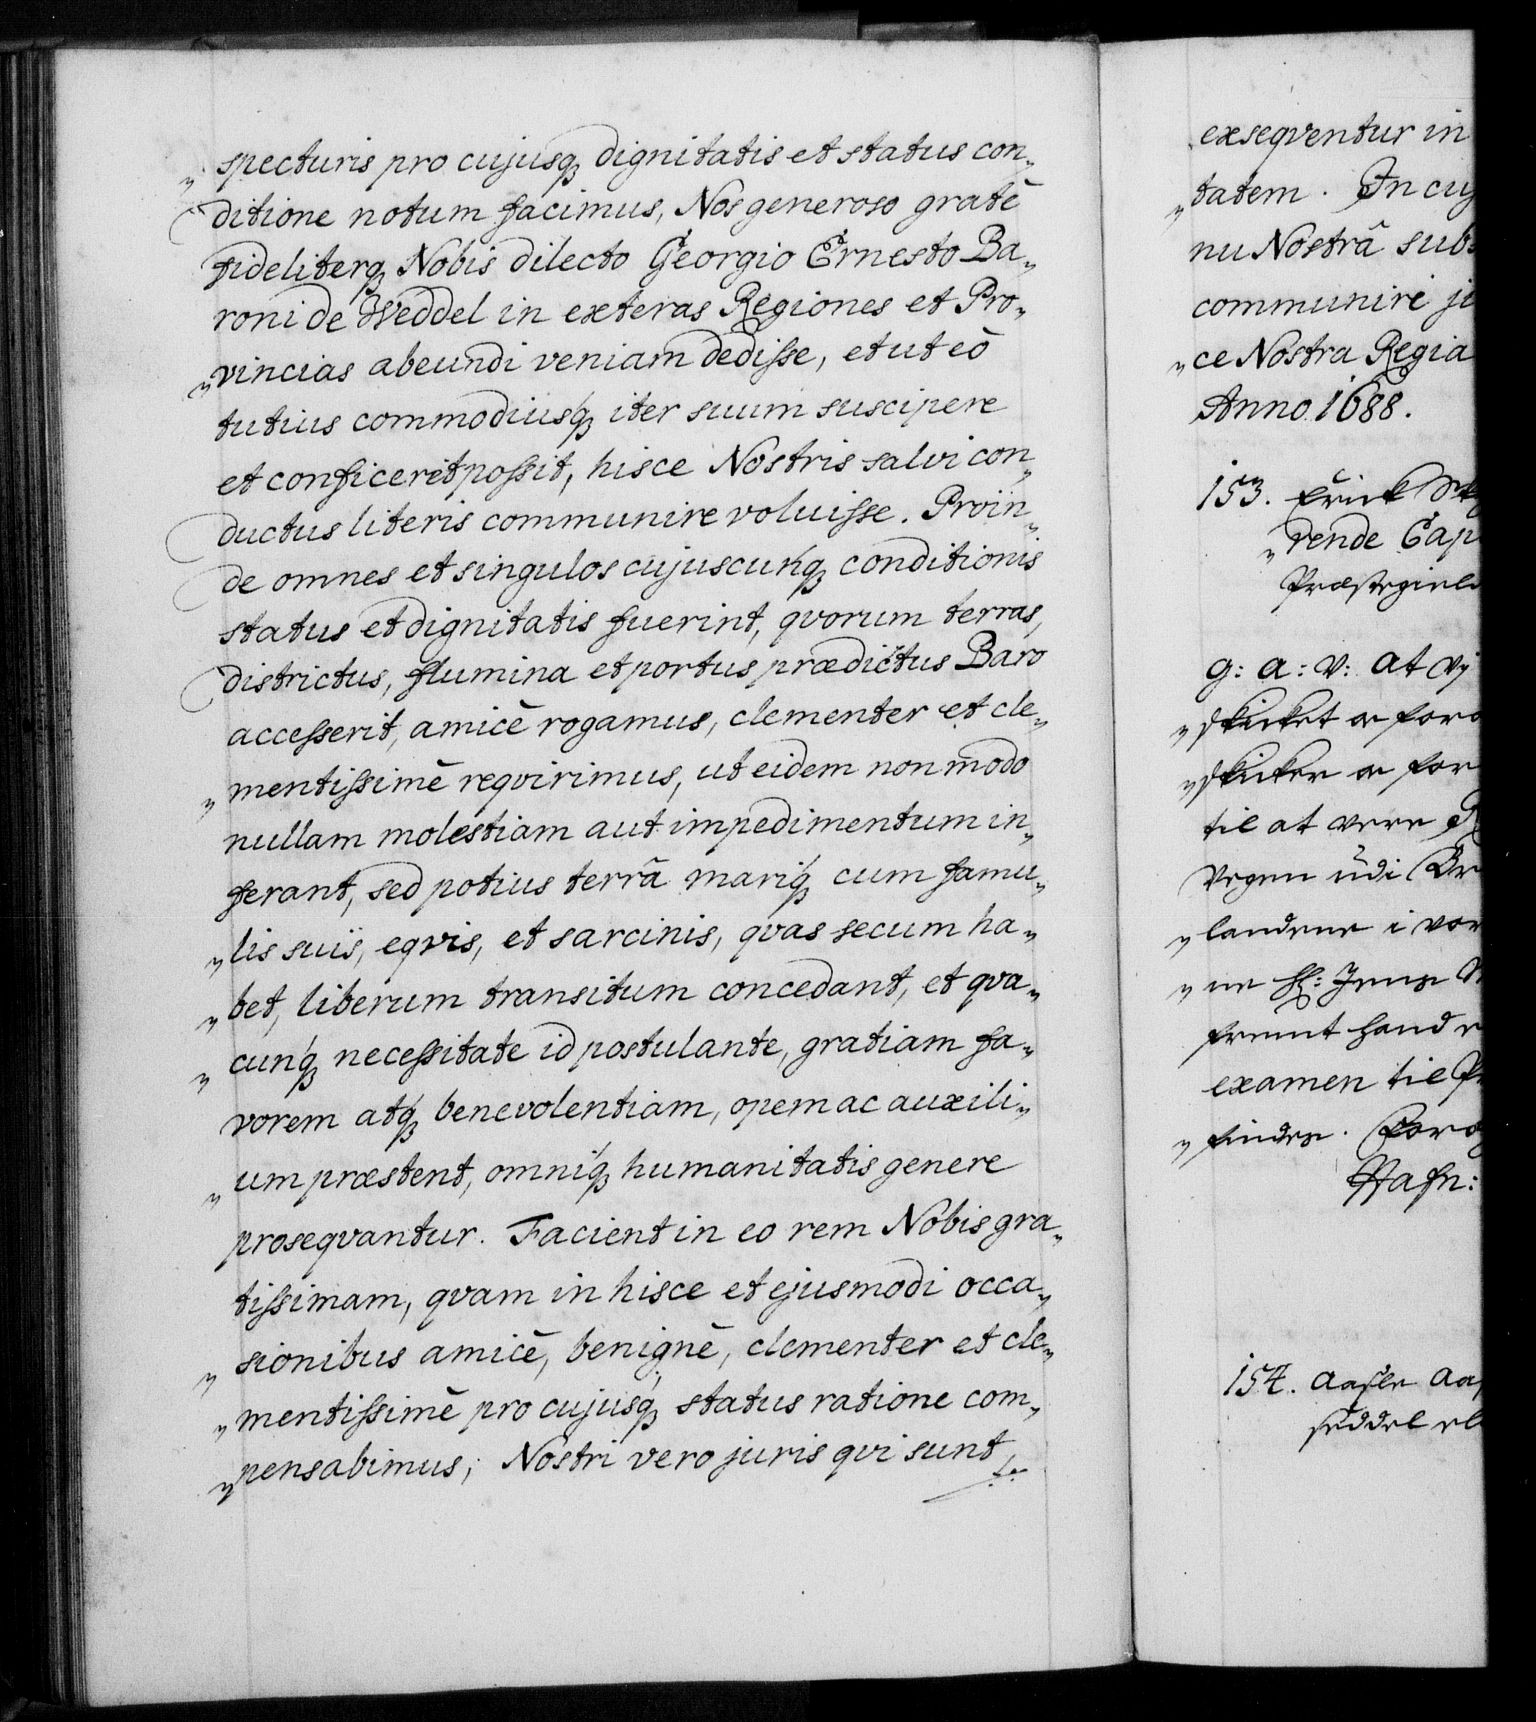 „specturis pro cujusq; dignitatis et status con„
ditione notum facimus, Nos generoso gratè
fideliterq; Nobis dilecto Georgio Ernesto Ba„
roni de Weddel in exteras Regiones et Pro„
„vincias abeundi veniam dedisse, et ut eò
tutius commodiusq; iter suum suscipere
et conficere possit, hisce Nostris salvi con„
ductus literis communire voluisse. Proin„
de omnes et singulos cujuscunq; conditionis
status et dignitatis fuerint, qvorum terras,
districtus, flumina et portus prædictus Baro
accesserit, amicè rogamus, clementer et cle„
„mentissimè reqvirimus, ut eidem non modo
nullam molestiam aut impedimentum in„
ferant, sed potius terrâ mariq; cum famu„
„lis suis, eqvis, et sarcinis, qvas secum ha„
„bet, liberum transitum concedant, et qva„
„cunq; necessitate id postulante, gratiam fa„
vorem atq; benevolentiam, opem ac auxili„
„um præstent, omniq; humanitatis genere
proseqvantur. Facient in eo rem Nobis gra„
tissimam, qvam in hisce et ejusmodi occa„
„sionibus amicè, benignè, clementer et cle„
„mentissimè pro cujusq; status ratione com„
„pensabimus; Nostri vero juris qvi sunt,
exseqventur in
„tatem. In cuj
nu Nostrâ subs
communire ju
„ce Nostra Regia
Anno 1688.
153. Erick
„rende Cap
Præstegield
g: a: v: at vj
„skicket oc foro
„skicker oc for
til at være
Vegen udi
„landene i vor
„ne Hr: Jens
fremt hand
examen til
„findes. Forb
Hafn:
154.
seddel